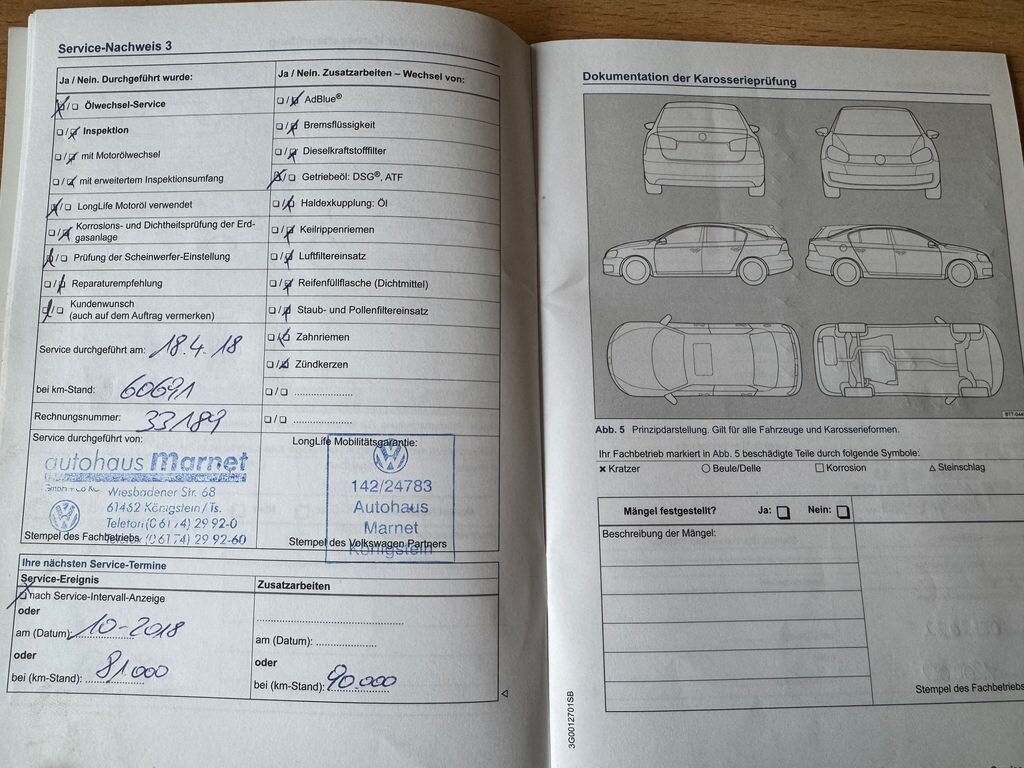 Service-Nachweis 3
Ja / Nein. Durchgeführt wurde:
Ölwechsel-Service
Inspektion
mit Motorölwechsel
mit erweitertem Inspektionsumfang
LongLife Motoröl verwendet
Korrosions- und Dichtheitsprüfung der Erd-
gasanlage
Prüfung der Scheinwerfer-Einstellung
Reparaturempfehlung
Kundenwunsch
(auch auf dem Auftrag vermerken)
Service durchgeführt am: 18.4.18
bei km-Stand: 60691
Rechnungsnummer: 33189
Service durchgeführt von:
autohaus marnet
GmbH + Co KG
Wiesbadener Str. 68
61462 Königstein/Ts.
Telefon (0 61 74) 29 92-0
Telefax (0 61 74) 29 92-60
Stempel des Fachbetriebs
Ja / Nein. Zusatzarbeiten – Wechsel von:
AdBlue®
Bremsflüssigkeit
Dieselkraftstofffilter
Getriebeöl: DSG®, ATF
Haldexkupplung: Öl
Keilrippenriemen
Luftfiltereinsatz
Reifenfüllflasche (Dichtmittel)
Staub- und Pollenfiltereinsatz
Zahnriemen
Zündkerzen
LongLife Mobilitätsgarantie:
142/24783
Autohaus
Marnet
Königstein
Stempel des Volkswagen Partners
Ihre nächsten Service-Termine
Service-Ereignis
nach Service-Intervall-Anzeige
oder
am (Datum): 10-2018
oder
bei (km-Stand): 81.000
Zusatzarbeiten
am (Datum):
oder
bei (km-Stand): 90.000
Dokumentation der Karosserieprüfung
BTT-044
Abb. 5 Prinzipdarstellung. Gilt für alle Fahrzeuge und Karosserieformen.
Ihr Fachbetrieb markiert in Abb. 5 beschädigte Teile durch folgende Symbole:
× Kratzer ○ Beule/Delle □ Korrosion △ Steinschlag
Mängel festgestellt? Ja: Nein:
Beschreibung der Mängel:
Stempel des Fachbetriebs
3G0012701SB